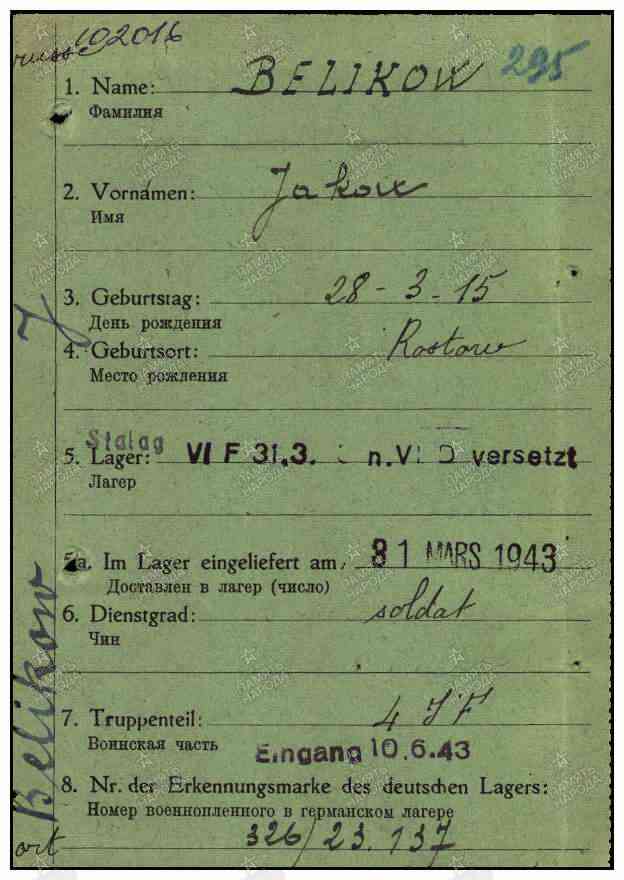 102016
295
1. Name: BELIKOW
Фамилия
2. Vornamen: Jakow
Имя
3. Geburtstag: 28-3-15
День рождения
4. Geburtsort: Rostow
Место рождения
Stalag
5. Lager: VI F 31.3. n. VI D versetzt
Лагер
5a. Im Lager eingeliefert am: 31 MARS 1943
Доставлен в лагер (число)
6. Dienstgrad: soldat
Чин
7. Truppenteil: 4 JF
Воинская часть
Eingang 10.6.43
8. Nr. der Erkennungsmarke des deutschen Lagers:
Номер военнопленного в германском лагере
326/23.137
Belikow J
ПАМЯТЬ НАРОДА